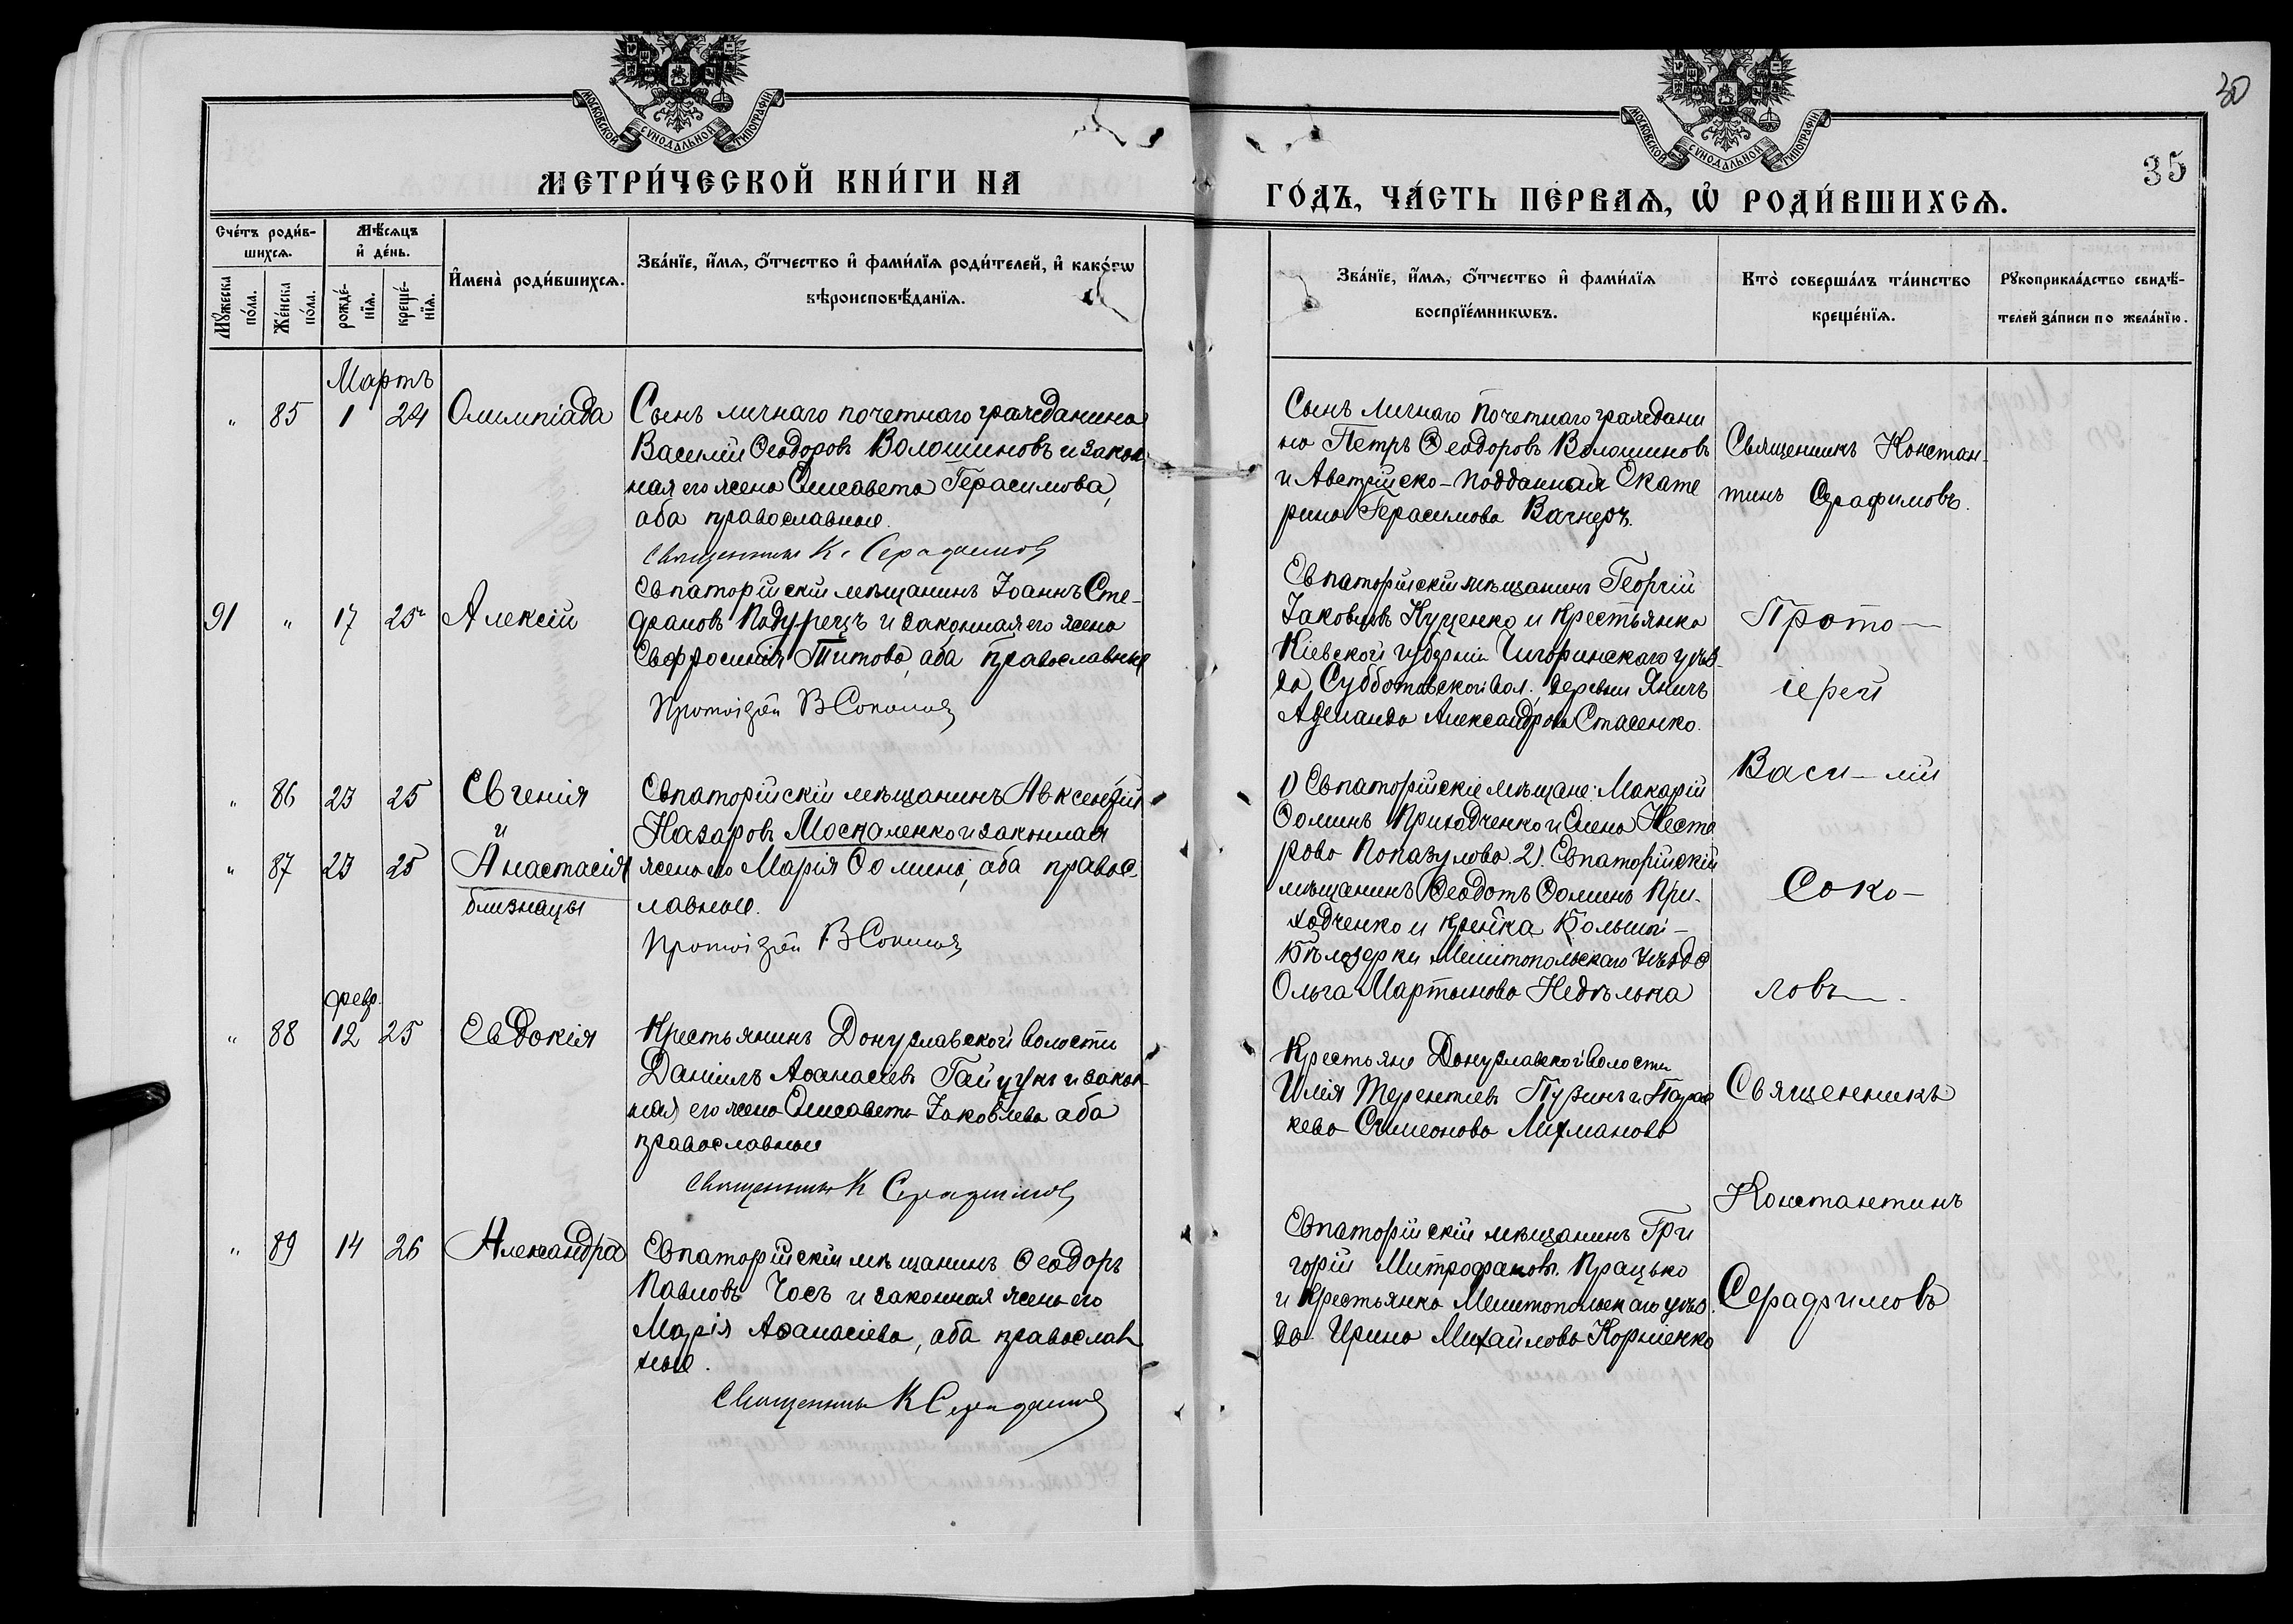 МОСКОВСКОЙ СѴНОДАЛЬНОЙ ТИПОГРАФІИ
МОСКОВСКОЙ СѴНОДАЛЬНОЙ ТИПОГРАФІИ
30
35
МЕТРИ́ЧЕСКОЙ КНИ́ГИ НА
ГО́ДЪ, ЧА́СТЬ ПЕ́РВАѦ, Ѡ҆ РОДИ́ВШИХСѦ.
Сче́тъ роди́в-
шихсѧ.
Мѣ́сѧцъ
и҆ де́нь.
Мꙋ́жеска
по́ла.
Же́нска
по́ла.
рожде́-
нїѧ.
креще́-
нїѧ.
И҆мена̀ роди́вшихсѧ.
Зва́нїе, и҆́мѧ, ѻ҆́тчество и҆ фами́лїѧ роди́телей, и҆ како́гѡ
вѣроисповѣ́данїѧ.
Зва́нїе, и҆́мѧ, ѻ҆́тчество и҆ фами́лїѧ
воспрїе́мникѡвъ.
Кто̀ соверша́лъ та́инство
креще́нїѧ.
Рꙋкоприкла́дство свидѣ́-
телей за́писи по жела́нїю.
Мартъ
" 85 1 24 Олимпіада
Сынъ личнаго почетнаго гражданина
Василій Ѳеодоровъ Волошиновъ и закон-
ная его жена Елисавета Герасимова,
оба православные.
Священникъ К. Серафимовъ
Сынъ личнаго почетнаго граждани
на Петръ Ѳеодоровъ Волошиновъ
и Австрійско-подданная Екате
рина Герасимова Вагнеръ.
Священникъ Констан-
тинъ Серафимовъ.
91 " 17 25 Алексій
Евпаторійскій мѣщанинъ Іоаннъ Сте-
фановъ Подурецъ и законная его жена
Евфросинія Титова, оба православные
Протоіерей В Соколовъ
Евпаторійскій мѣщанинъ Георгій
Іаковлевъ Куценко и крестьянка
Кіевской губерніи Чигиринскаго уѣз-
да Субботовской вол., деревни Яничъ
Александра Стасенко.
Прото-
іерей
Васи-лій
Соко-
ловъ
" 86 23 25 Евгенія
и
" 87 23 25 Анастасія
близнацы
Евпаторійскій мѣщанинъ Авксентій
Назаровъ Москаленко и законная
жена его Марія Ѳомина, оба правос-
лавные.
Протоіерей В Соколовъ
1) Евпаторійскіе мѣщане: Макарій
Ѳоминъ Приходченко и Елена Несто
рова Попазулова. 2). Евпаторійскій
мѣщанинъ Ѳеодотъ Ѳоминъ При-
ходченко и кр-нка Большой-
Бѣлозерки Мелитопольскаго уѣзда
Ольга Мартынова Недѣлька
февр.
" 88 12 25 Евдокія
Крестьянинъ Донузлавской волости
Даніилъ Аѳанасіевъ Гайдукъ и закон-
ная его жена Елисавета Іаковлева оба
православные
Священникъ К Серафимовъ
Крестьяне Донузлавской волости
Илія Терентіевъ Пузинъ и Парас
кева Симеонова Лихманова
Священникъ
Константинъ
Серафимовъ
" 89 14 26 Александра
Евпаторійскій мѣщанинъ Ѳеодоръ
Павловъ Чосъ и законная жена его
Марія Аѳанасіева, оба православ
ные.
Священникъ К Серафимовъ
Евпаторійскій мѣщанинъ Гри
горій Митрофановъ Працько
и крестьянка Мелитопольскаго уѣз.
да Ирина Михайлова Корніенко